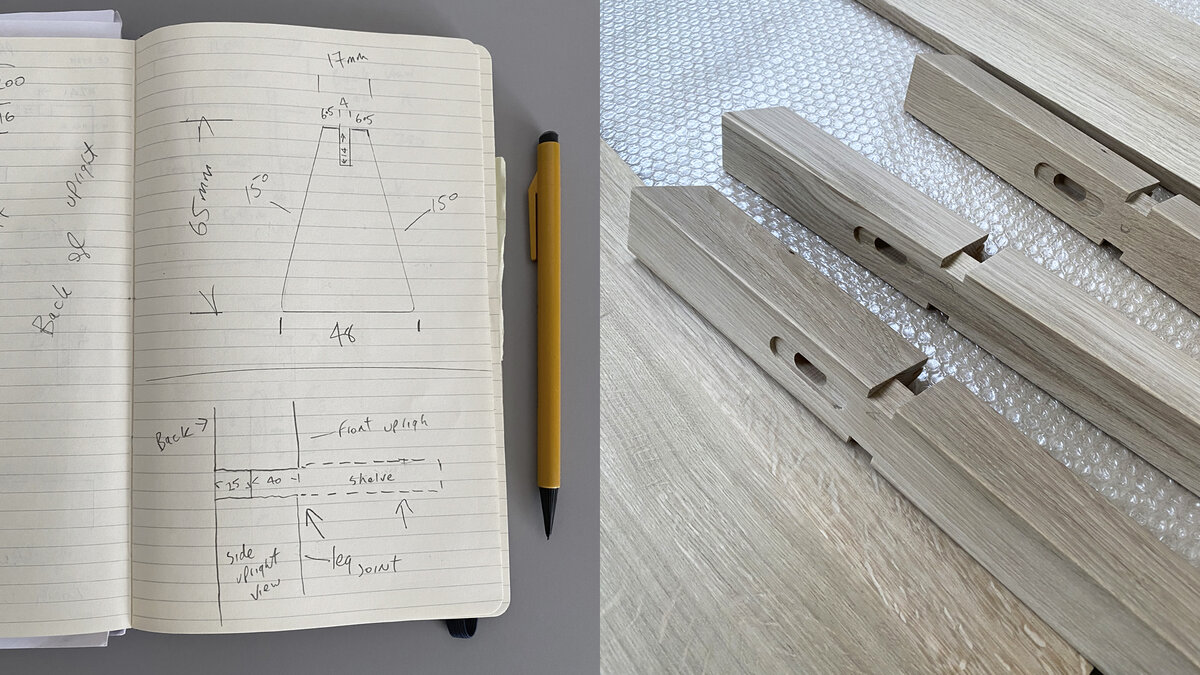 Back of upright
17mm
4
6.5 6.5
65mm
15°
15°
48
Back
Front uprigh
25 40
shelve
side
upright
view
leg joint